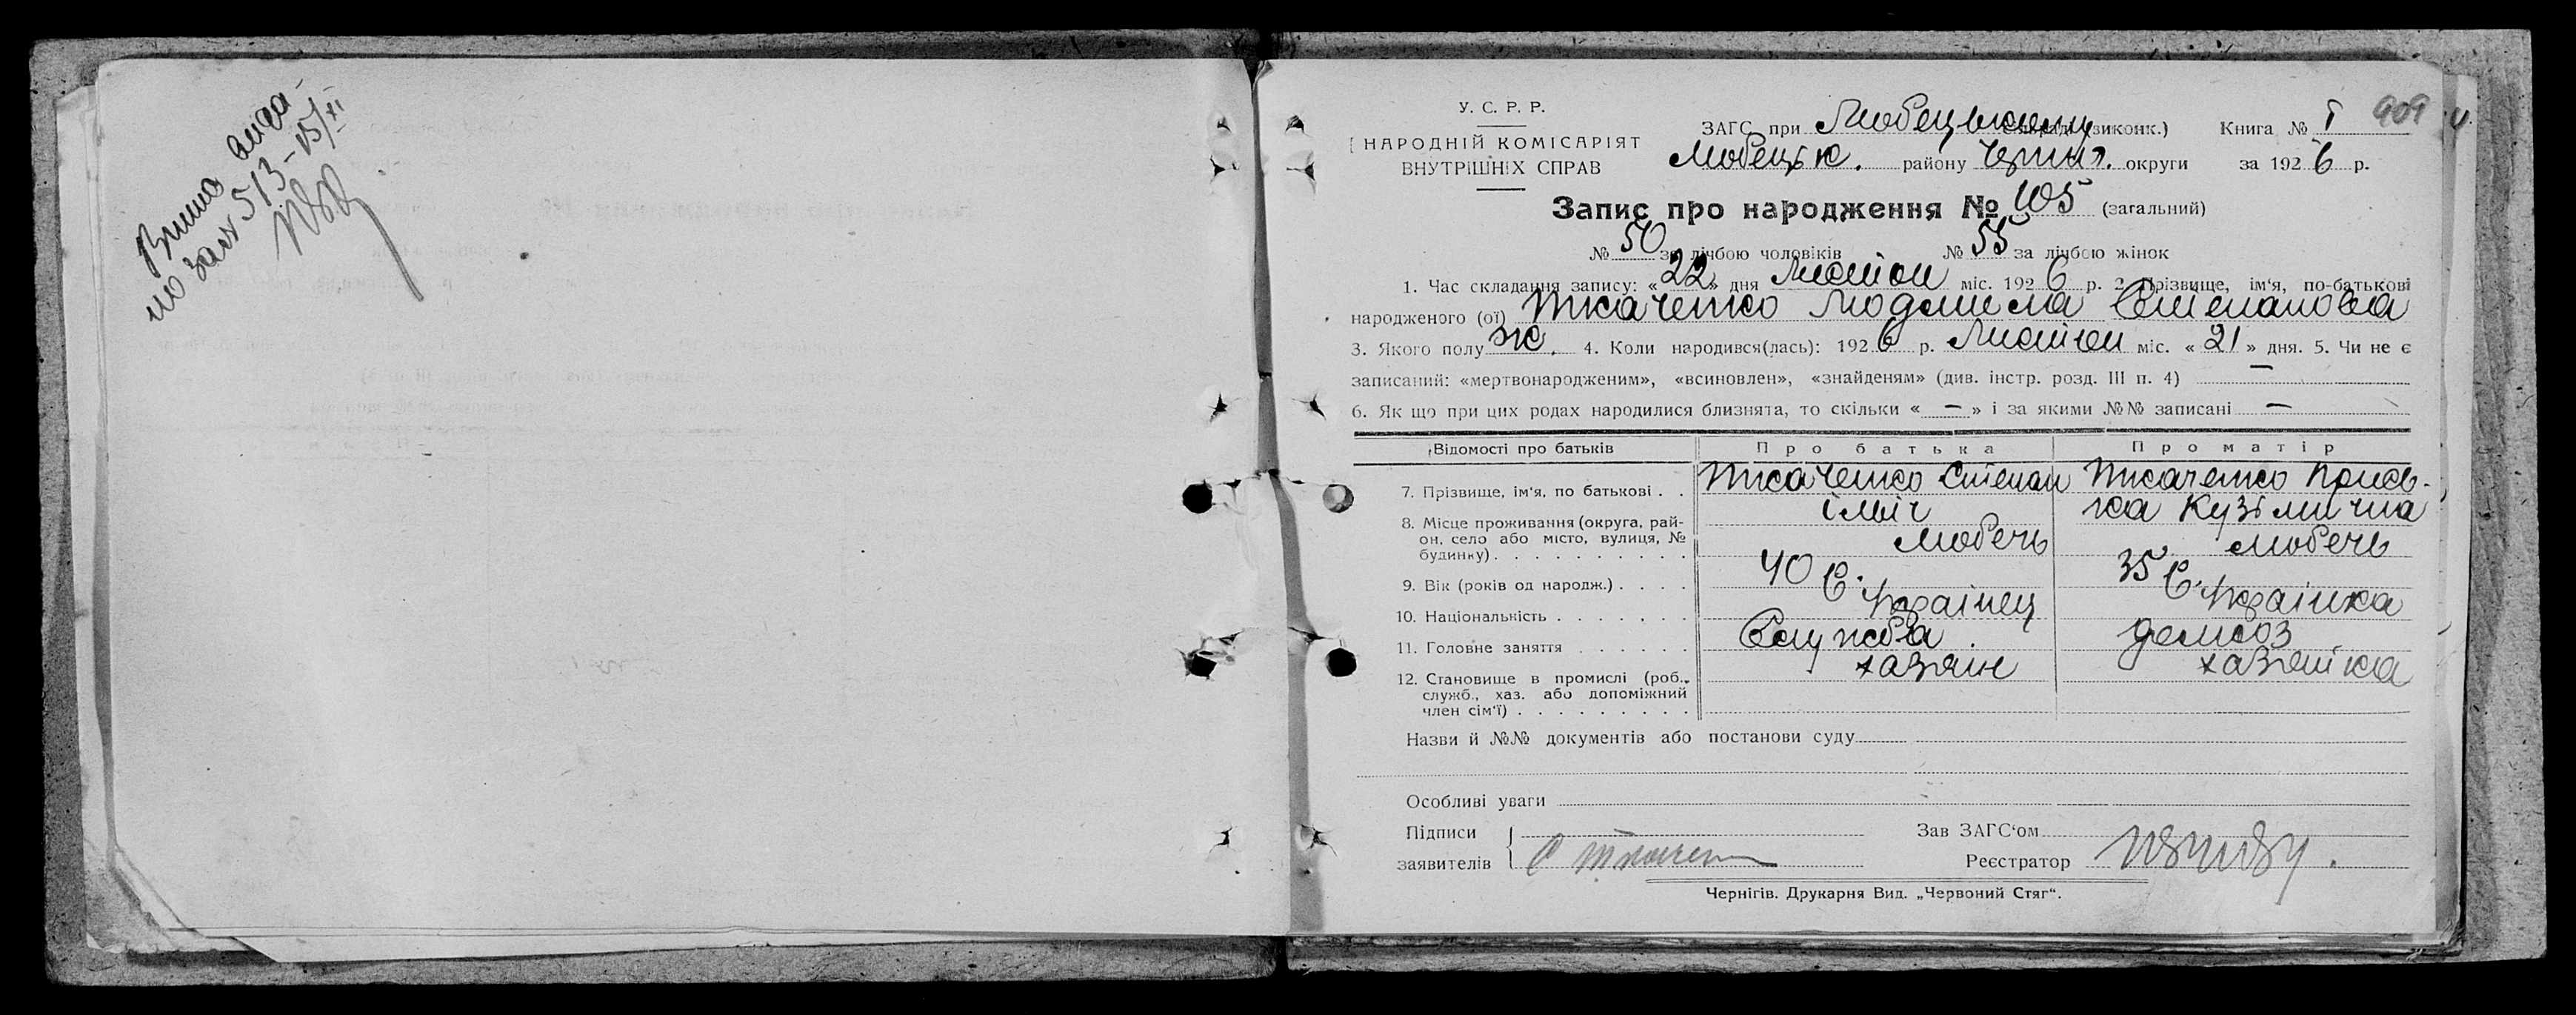 Випис видан
по заяв 513 - 15/XI
909
У. С. Р. Р.
НАРОДНІЙ КОМІСАРІЯТ
ВНУТРІШНІХ СПРАВ
ЗАГС при Любецькому виконк.) Книга № I
Любецьк. району Черниг. округи за 1926 р.
Запис про народження № 105 (загальний)
№ 50 за лічбою чоловіків № 55 за лічбою жінок
1. Час складання запису: «22» дня Листоп міс. 1926 р. 2. Прізвище, ім'я, по-батькові
народженого (ої) Ткаченко Людмила Степановна
3. Якого полу ж. 4. Коли народився(лась): 1926 р. Листоп міс. «21» дня. 5. Чи не є
записаний: «мертвонародженим», «всиновлен», «знайденям» (див. інстр. розд. III п. 4) —
6. Як що при цих родах народилися близнята, то скільки « — » і за якими №№ записані —
Відомості про батьків Про батька Про матір
7. Прізвище, ім'я, по батькові . . Ткаченко Степан Ільіч Ткаченко Кузьмична
8. Місце проживання (округа, рай-
он, село або місто, вулиця, №
будинку) . . . . . . . . . . Любечь Любечь
9. Вік (років од народж.) . . . . 40 35
10. Національність . . . . . . . Українец Українка
11. Головне заняття . . . . . . Служба домхоз
12. Становище в промислі (роб.,
служб., хаз. або допоміжний
член сім'ї) . . . . . . . . . хазяин хазяйка
Назви й №№ документів або постанови суду
Особливі уваги
Підписи
заявителів С Ткаченко
Зав ЗАГС'ом
Реєстратор
Чернігів. Друкарня Вид. „Червоний Стяг".